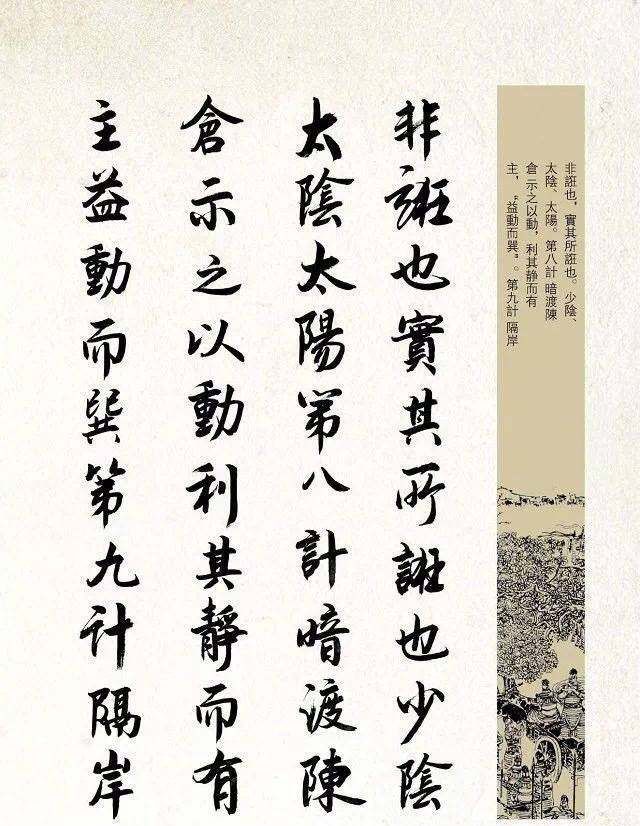 非誑也，實其所誑也。少陰、
太陰、太陽。第八計 暗渡陳
倉 示之以動，利其静而有
主，“益動而巽”。第九計 隔岸
非誑也實其所誑也少陰
太陰太陽第八計暗渡陳
倉示之以動利其靜而有
主益動而巽第九计隔岸